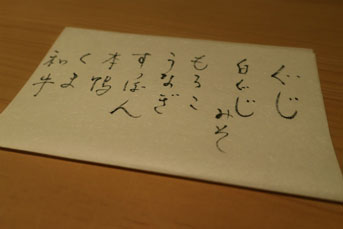 ぐじ
白ぐじ
みそ
もろこ
うなぎ
すっぽん
本鴨
くま
和牛